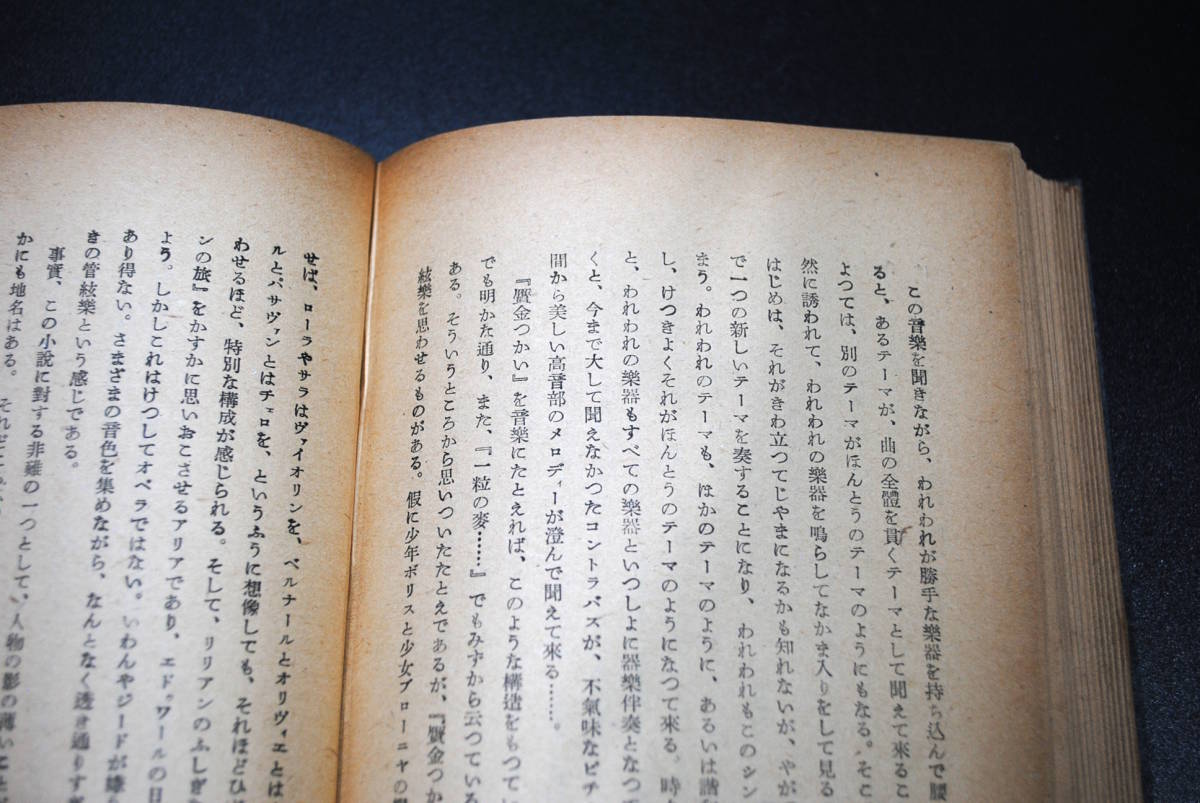 この音樂を聞きながら、われわれが勝手な樂器を持ち込んで腰
ると、あるテーマが、曲の全體を貫くテーマとして聞えて來るこ
よつては、別のテーマがほんとうのテーマのようにもなる。そこ
然に誘われて、われわれの樂器を鳴らしてなかま入りをして見る
はじめは、それがきわ立つてじやまになるかも知れないが、やが
で一つの新しいテーマを奏することになり、われわれもこのシン
まう。われわれのテーマも、ほかのテーマのように、あるいは諧
し、けつきよくそれがほんとうのテーマのようになつて來る。時
と、われわれの樂器もすべての樂器といつしよに器樂伴奏となつて
くと、今まで大して聞えなかつたコントラバスが、不氣味なピチ
間から美しい高音部のメロディーが澄んで聞えて來る……。
『贋金つかい』を音樂にたとえれば、このような構造をもつてい
でも明かた通り、また、『一粒の麥……』でもみずから云つている
ある。そういうところから思いついたたとえであるが、『贋金つか
絃樂を思わせるものがある。假に少年ボリスと少女ブローニヤの
せば、ローラやサラはヴァイオリンを、ベルナールとオリヴィエとは
ルとパサヴァンとはチェロを、というふうに想像しても、それほどひ
わせるほど、特別な構成が感じられる。そして、リリアンのふしぎ
ンの旅』をかすかに思いおこさせるアリアであり、エドゥワールの日
よう。しかしこれはけつしてオペラではない。いわんやジードが嫌
あり得ない。さまざまの音色を集めながら、なんとなく透き通りす
きの管絃樂という感じである。
事實、この小説に對する非難の一つとして、人物の影の薄いこと
かにも地名はある。それどこ